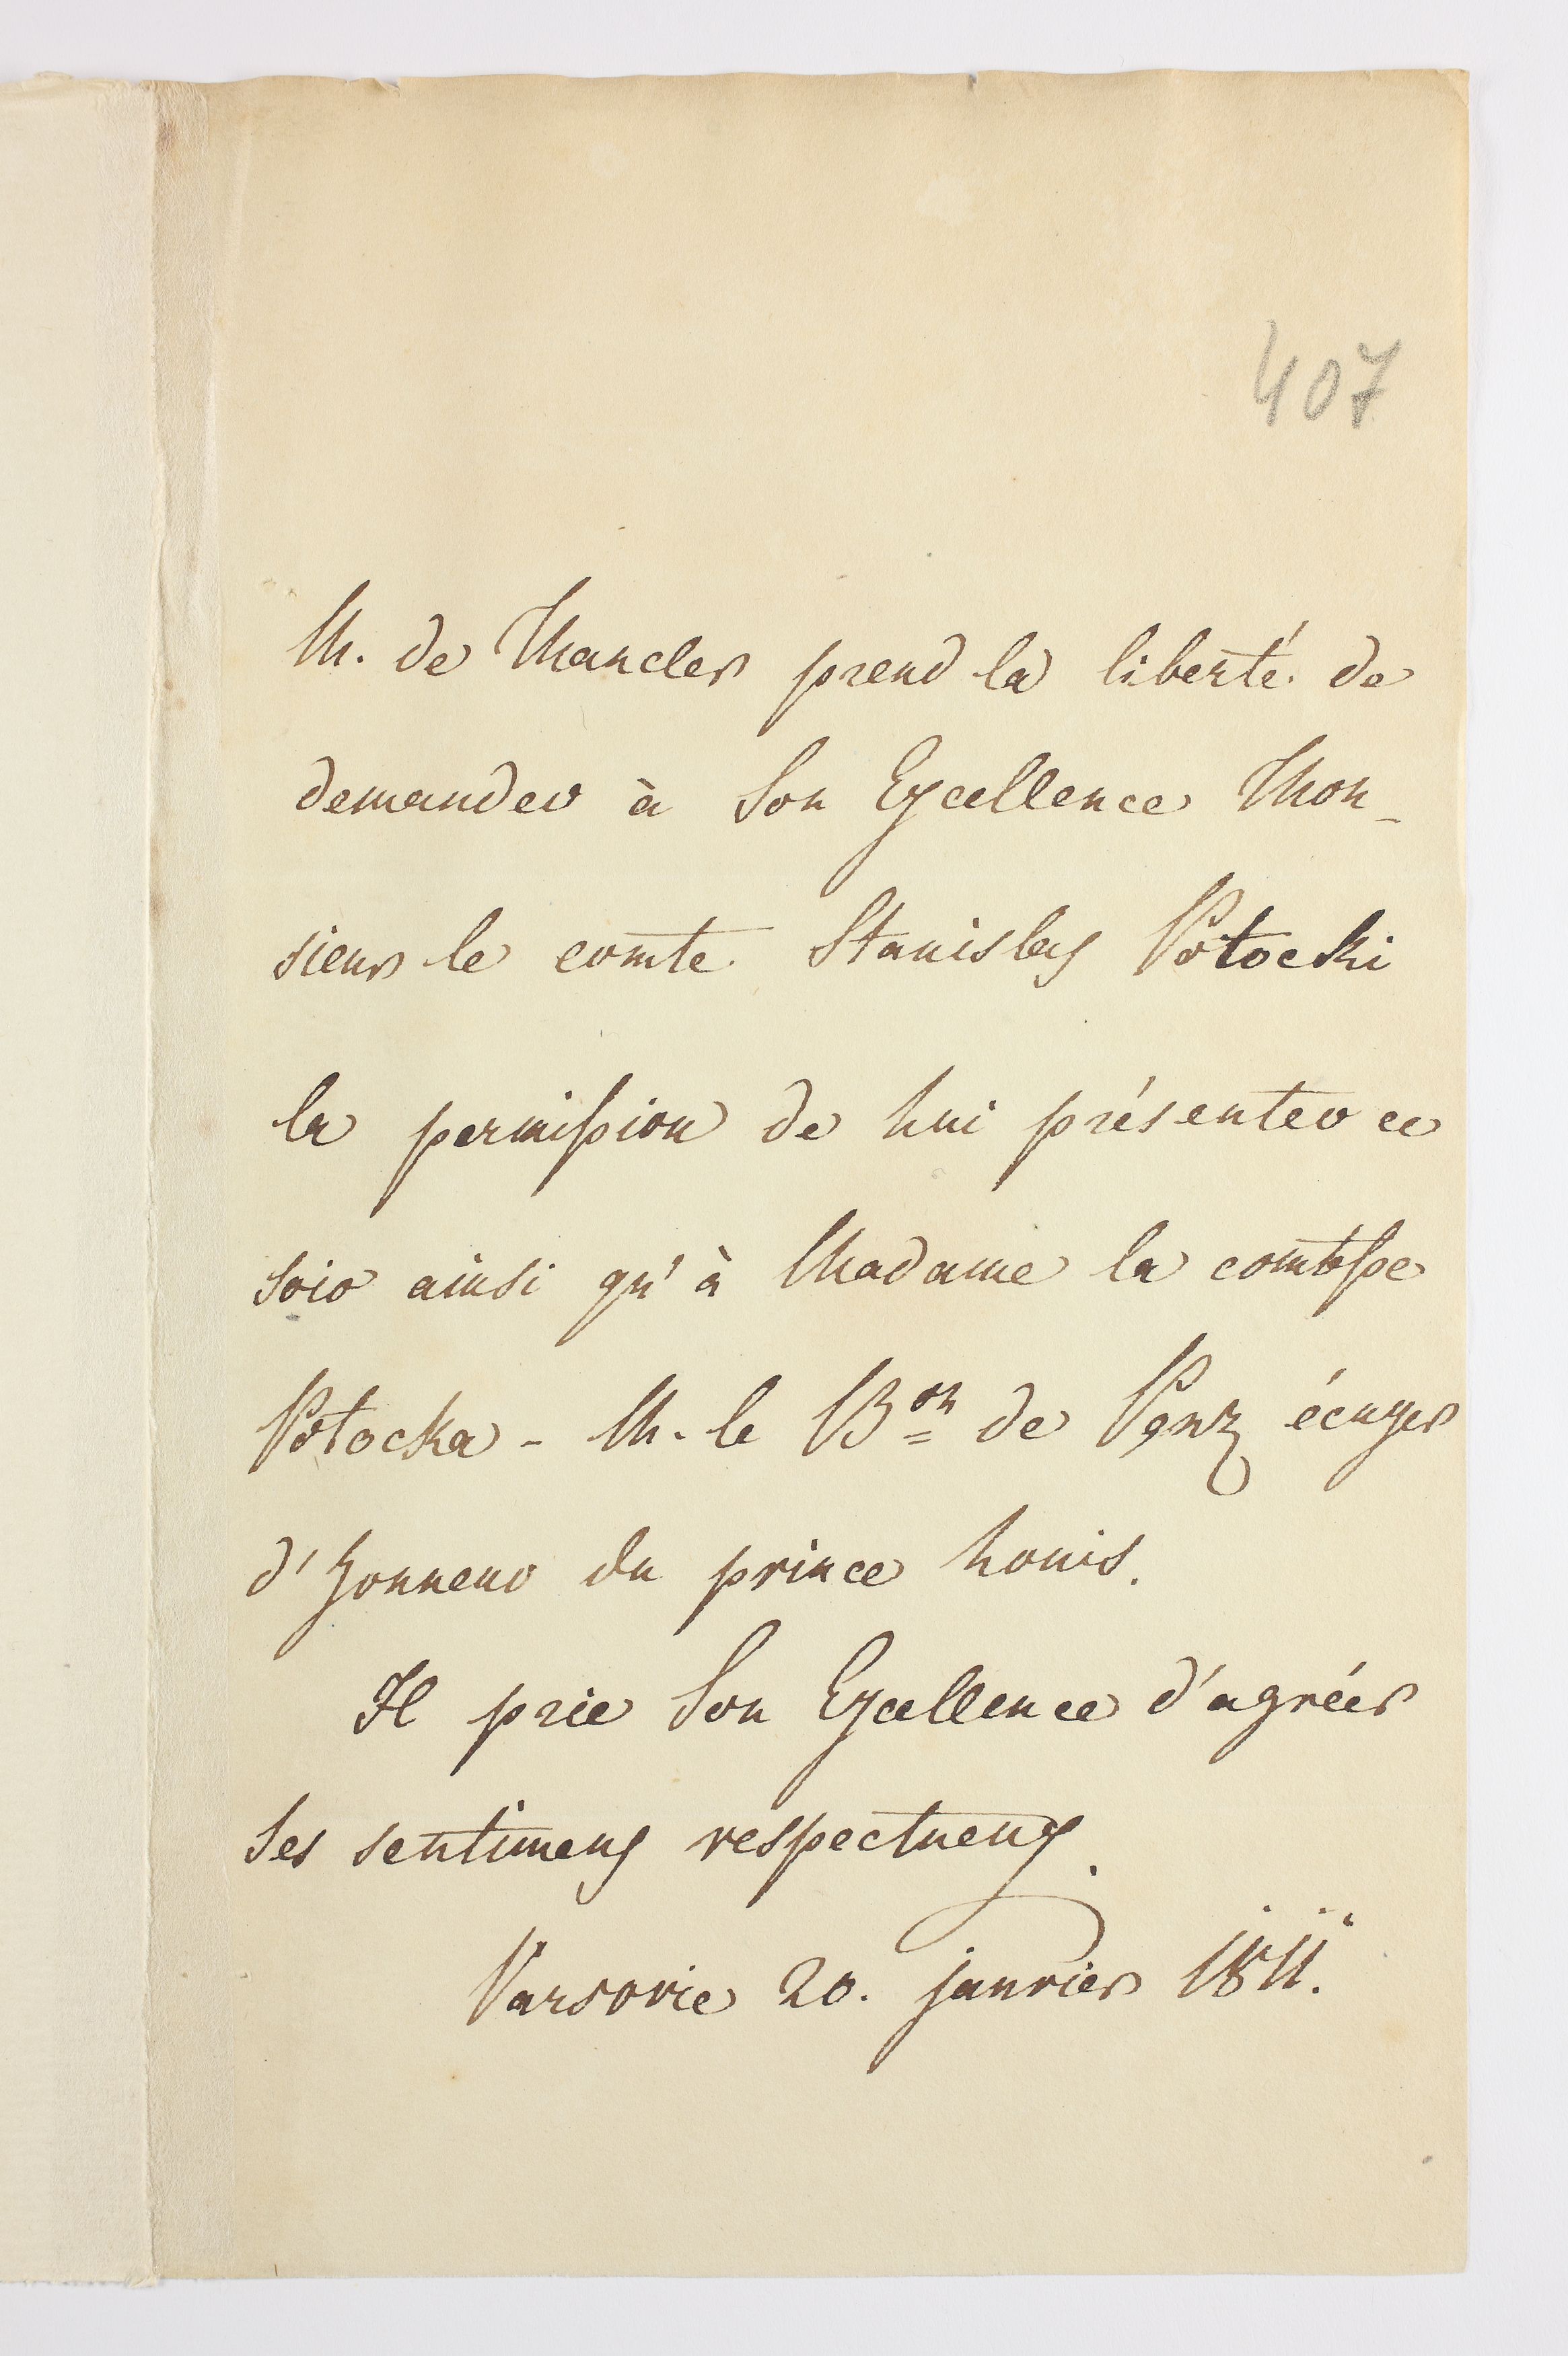 407
M. de Mancler prend la liberté de
demander à Son Excellence Mon-
sieur le comte Stanislas Potocki
la permission de Lui présenter ce
soir ainsi qu'à Madame la comtesse
Potocka - M. le Bon de Penz écuyer
d'honneur du prince Louis.
Il prie Son Excellence d'agréer
Ses sentimens respectueux.
Varsovie 20. janvier 1811.